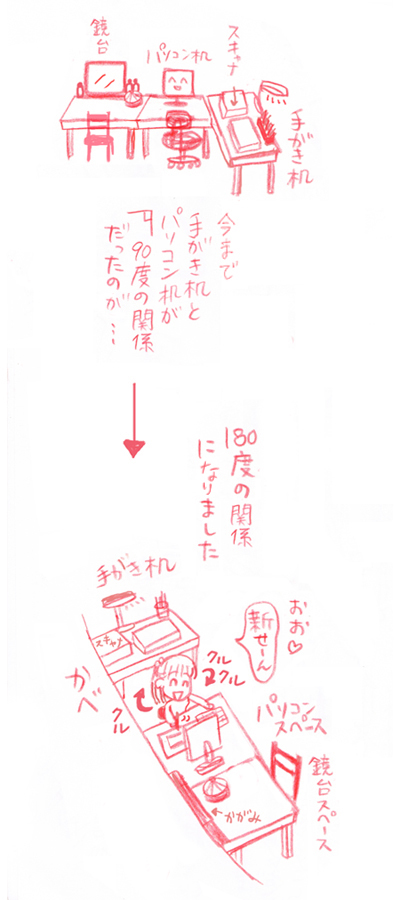 鏡台
パソコン机
スキャナ
手がき机
今まで
手がき机と
パソコン机が
90度の関係
だったのが…
180度の関係
になりました
手がき机
スキャナ
かべ
クル
クル
クル
おお♡
新せーん
パソコン
スペース
鏡台スペース
←かがみ